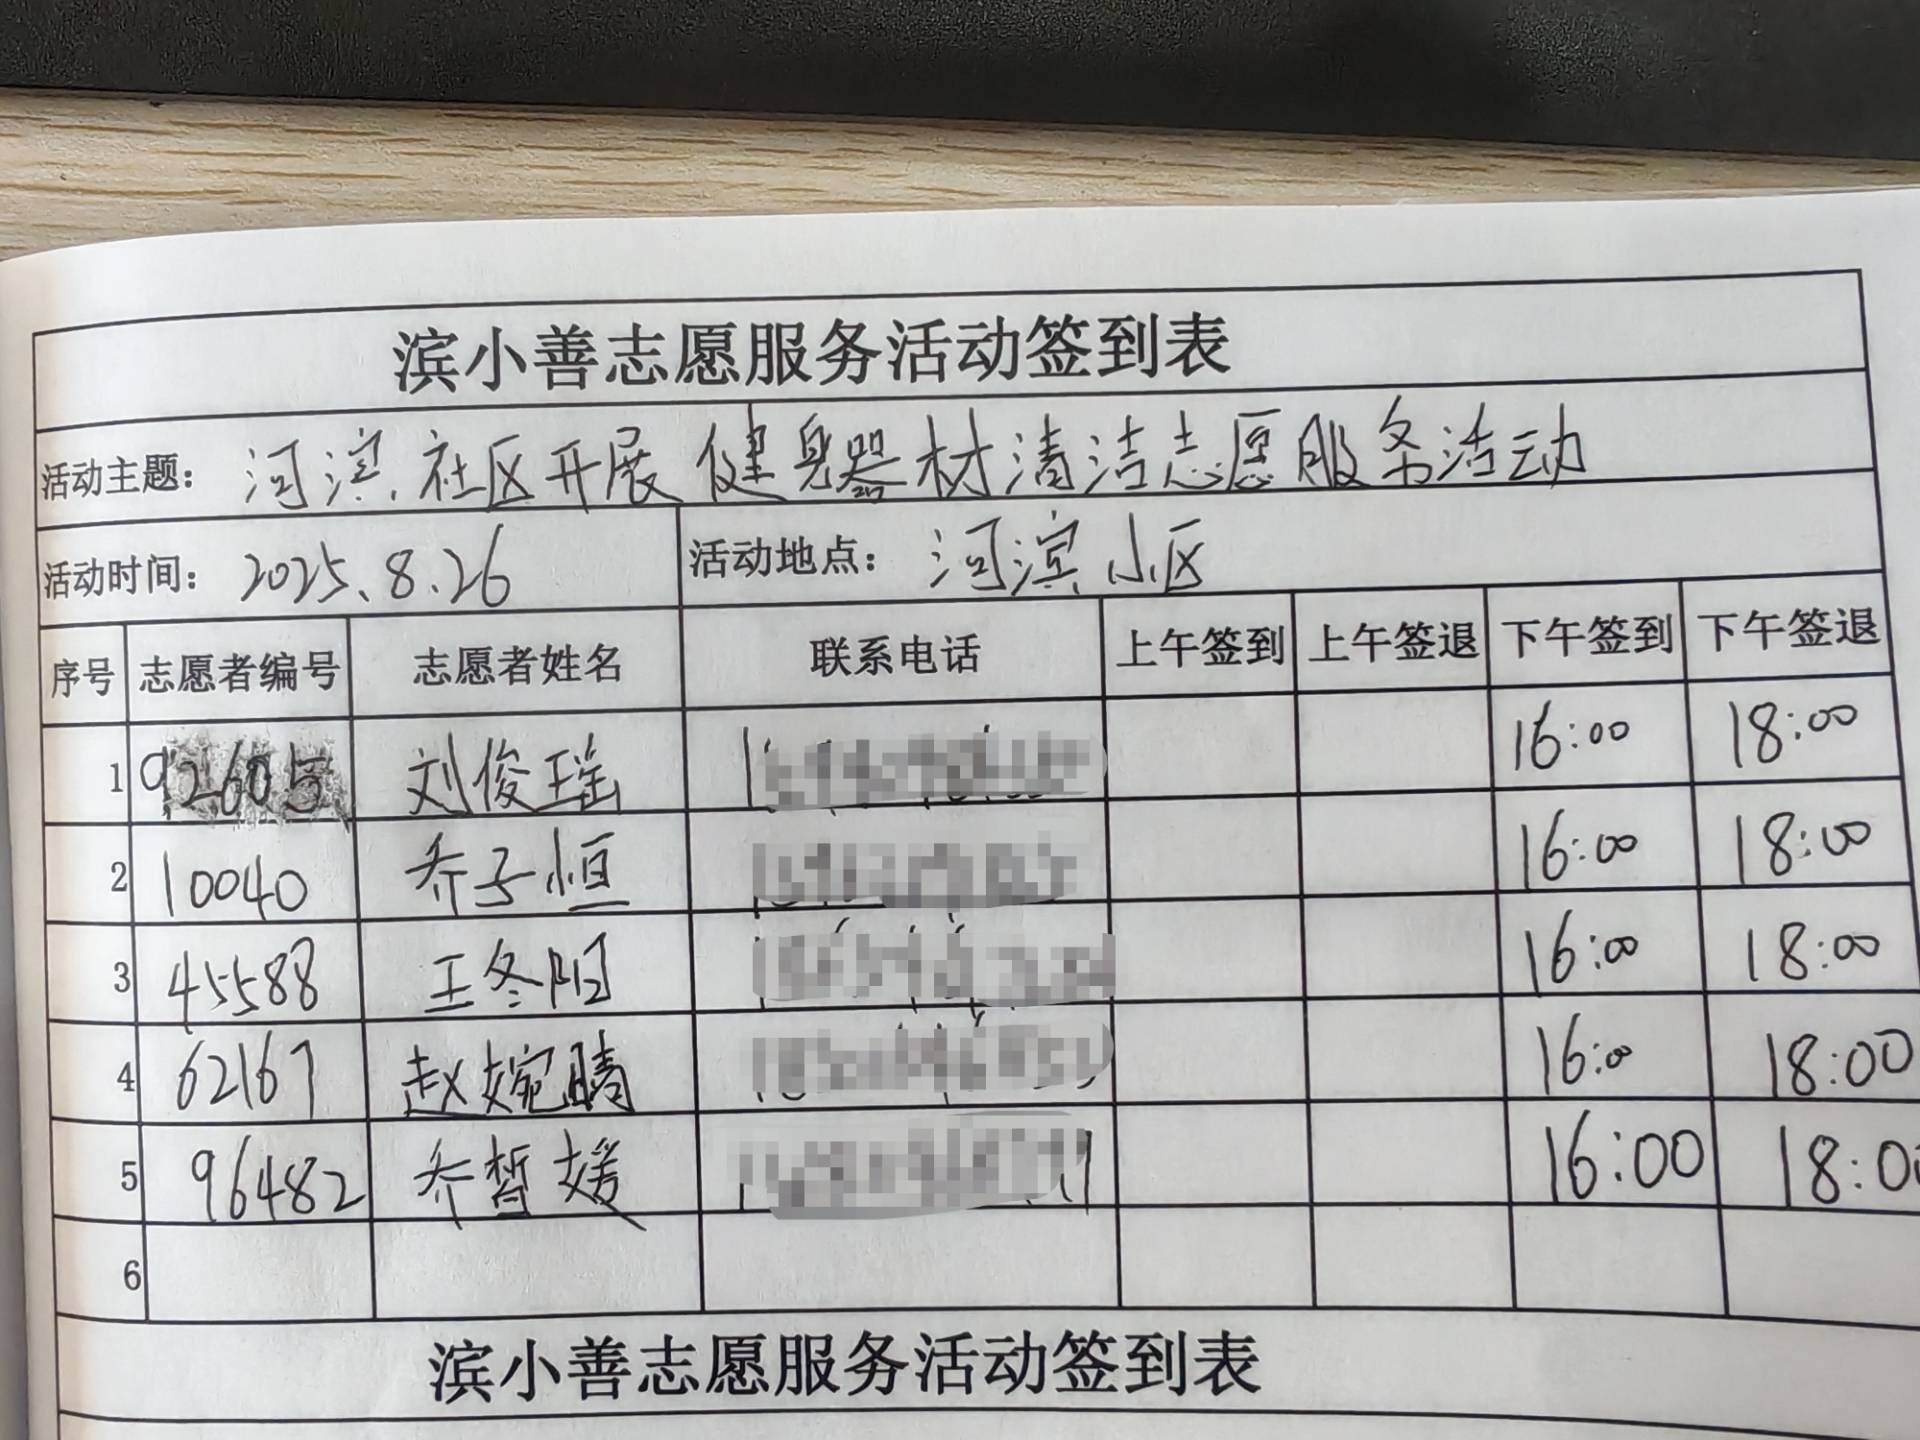 滨小善志愿服务活动签到表
活动主题： 河滨社区开展健身器材清洁志愿服务活动
活动时间： 2025.8.26 活动地点： 河滨小区
序号 志愿者编号 志愿者姓名 联系电话 上午签到 上午签退 下午签到 下午签退
1 92605 刘俊瑶 16:00 18:00
2 10040 乔子恒 16:00 18:00
3 45588 王冬阳 16:00 18:00
4 62167 赵婉晴 16:00 18:00
5 96482 乔皙媛 16:00 18:00
6
滨小善志愿服务活动签到表